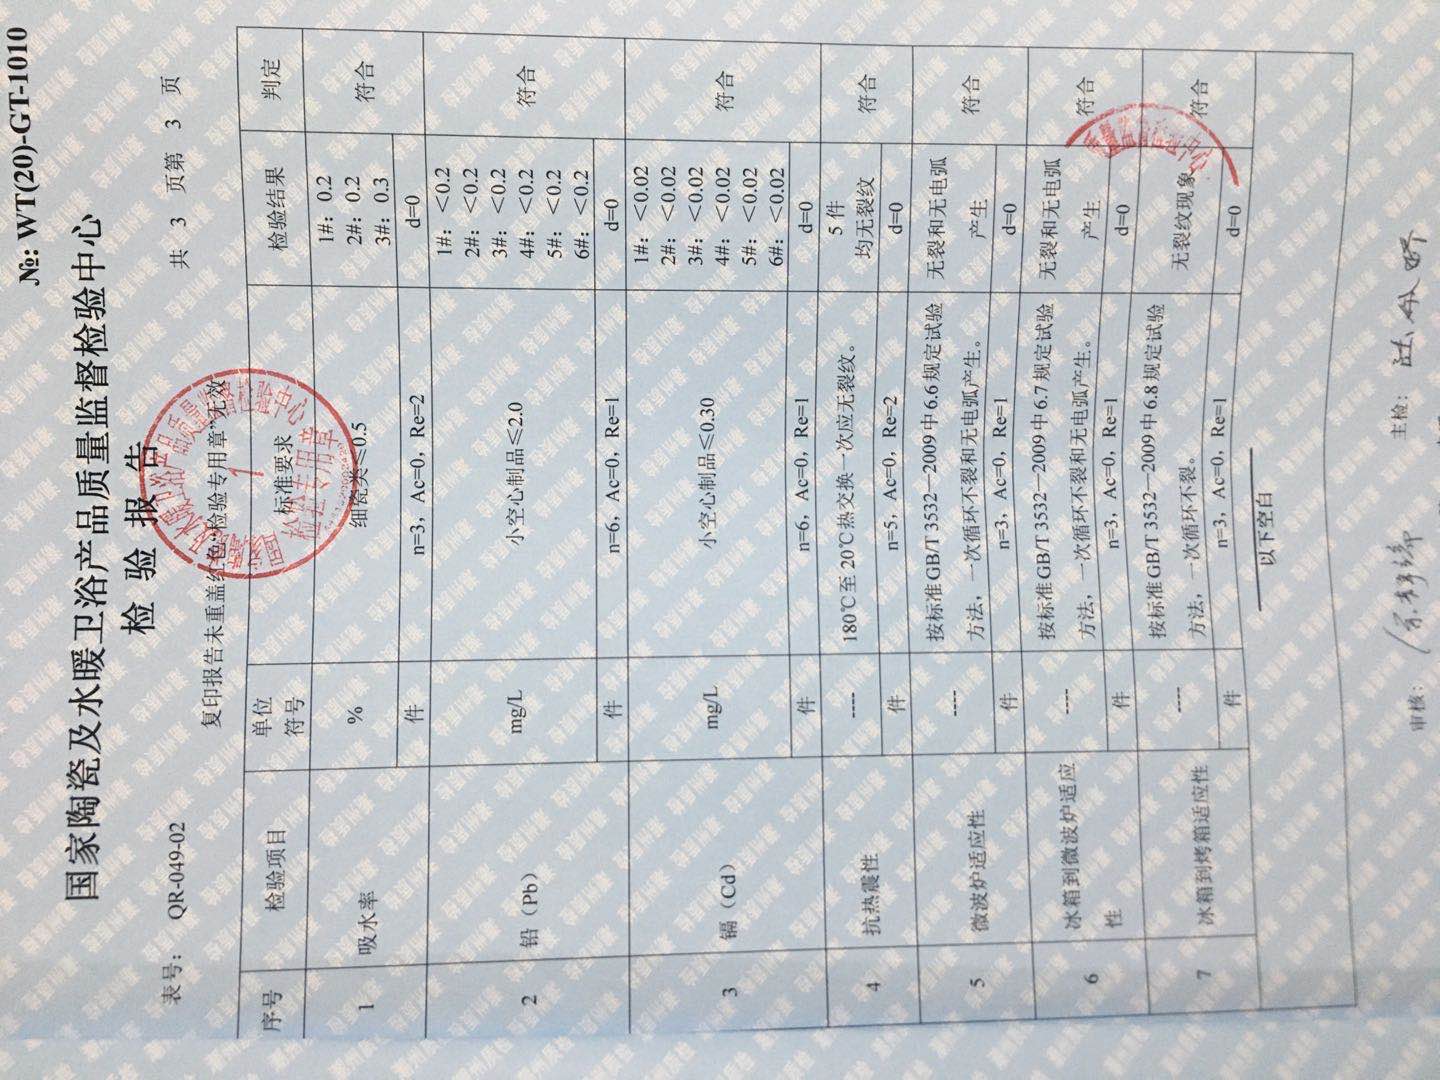 №: WT(20)-GT-1010
国家陶瓷及水暖卫浴产品质量监督检验中心
检 验 报 告
复印报告未重盖红色“检验专用章”无效
表号: QR-049-02 共 3 页第 3 页
序号 检验项目 单位符号 标准要求 检验结果 判定
1 吸水率 % 细瓷类≤0.5 1#: 0.2 符合
2#: 0.2
3#: 0.3
件 n=3, Ac=0, Re=2 d=0
2 铅（Pb） mg/L 小空心制品≤2.0 1#: ＜0.2 符合
2#: ＜0.2
3#: ＜0.2
4#: ＜0.2
5#: ＜0.2
6#: ＜0.2
件 n=6, Ac=0, Re=1 d=0
3 镉（Cd） mg/L 小空心制品≤0.30 1#: ＜0.02 符合
2#: ＜0.02
3#: ＜0.02
4#: ＜0.02
5#: ＜0.02
6#: ＜0.02
件 n=6, Ac=0, Re=1 d=0
4 抗热震性 ---- 180℃至20℃热交换一次应无裂纹。 5 件 符合
均无裂纹
件 n=5, Ac=0, Re=2 d=0
5 微波炉适应性 ---- 按标准GB/T 3532—2009中6.6规定试验 无裂和无电弧 符合
方法，一次循环不裂和无电弧产生。 产生
件 n=3, Ac=0, Re=1 d=0
6 冰箱到微波炉适应 ---- 按标准GB/T 3532—2009中6.7规定试验 无裂和无电弧 符合
性 方法，一次循环不裂和无电弧产生。 产生
件 n=3, Ac=0, Re=1 d=0
7 冰箱到烤箱适应性 ---- 按标准GB/T 3532—2009中6.8规定试验 无裂纹现象 符合
方法，一次循环不裂。
件 n=3, Ac=0, Re=1 d=0
以下空白
审核: 主检:
检验专用章
1